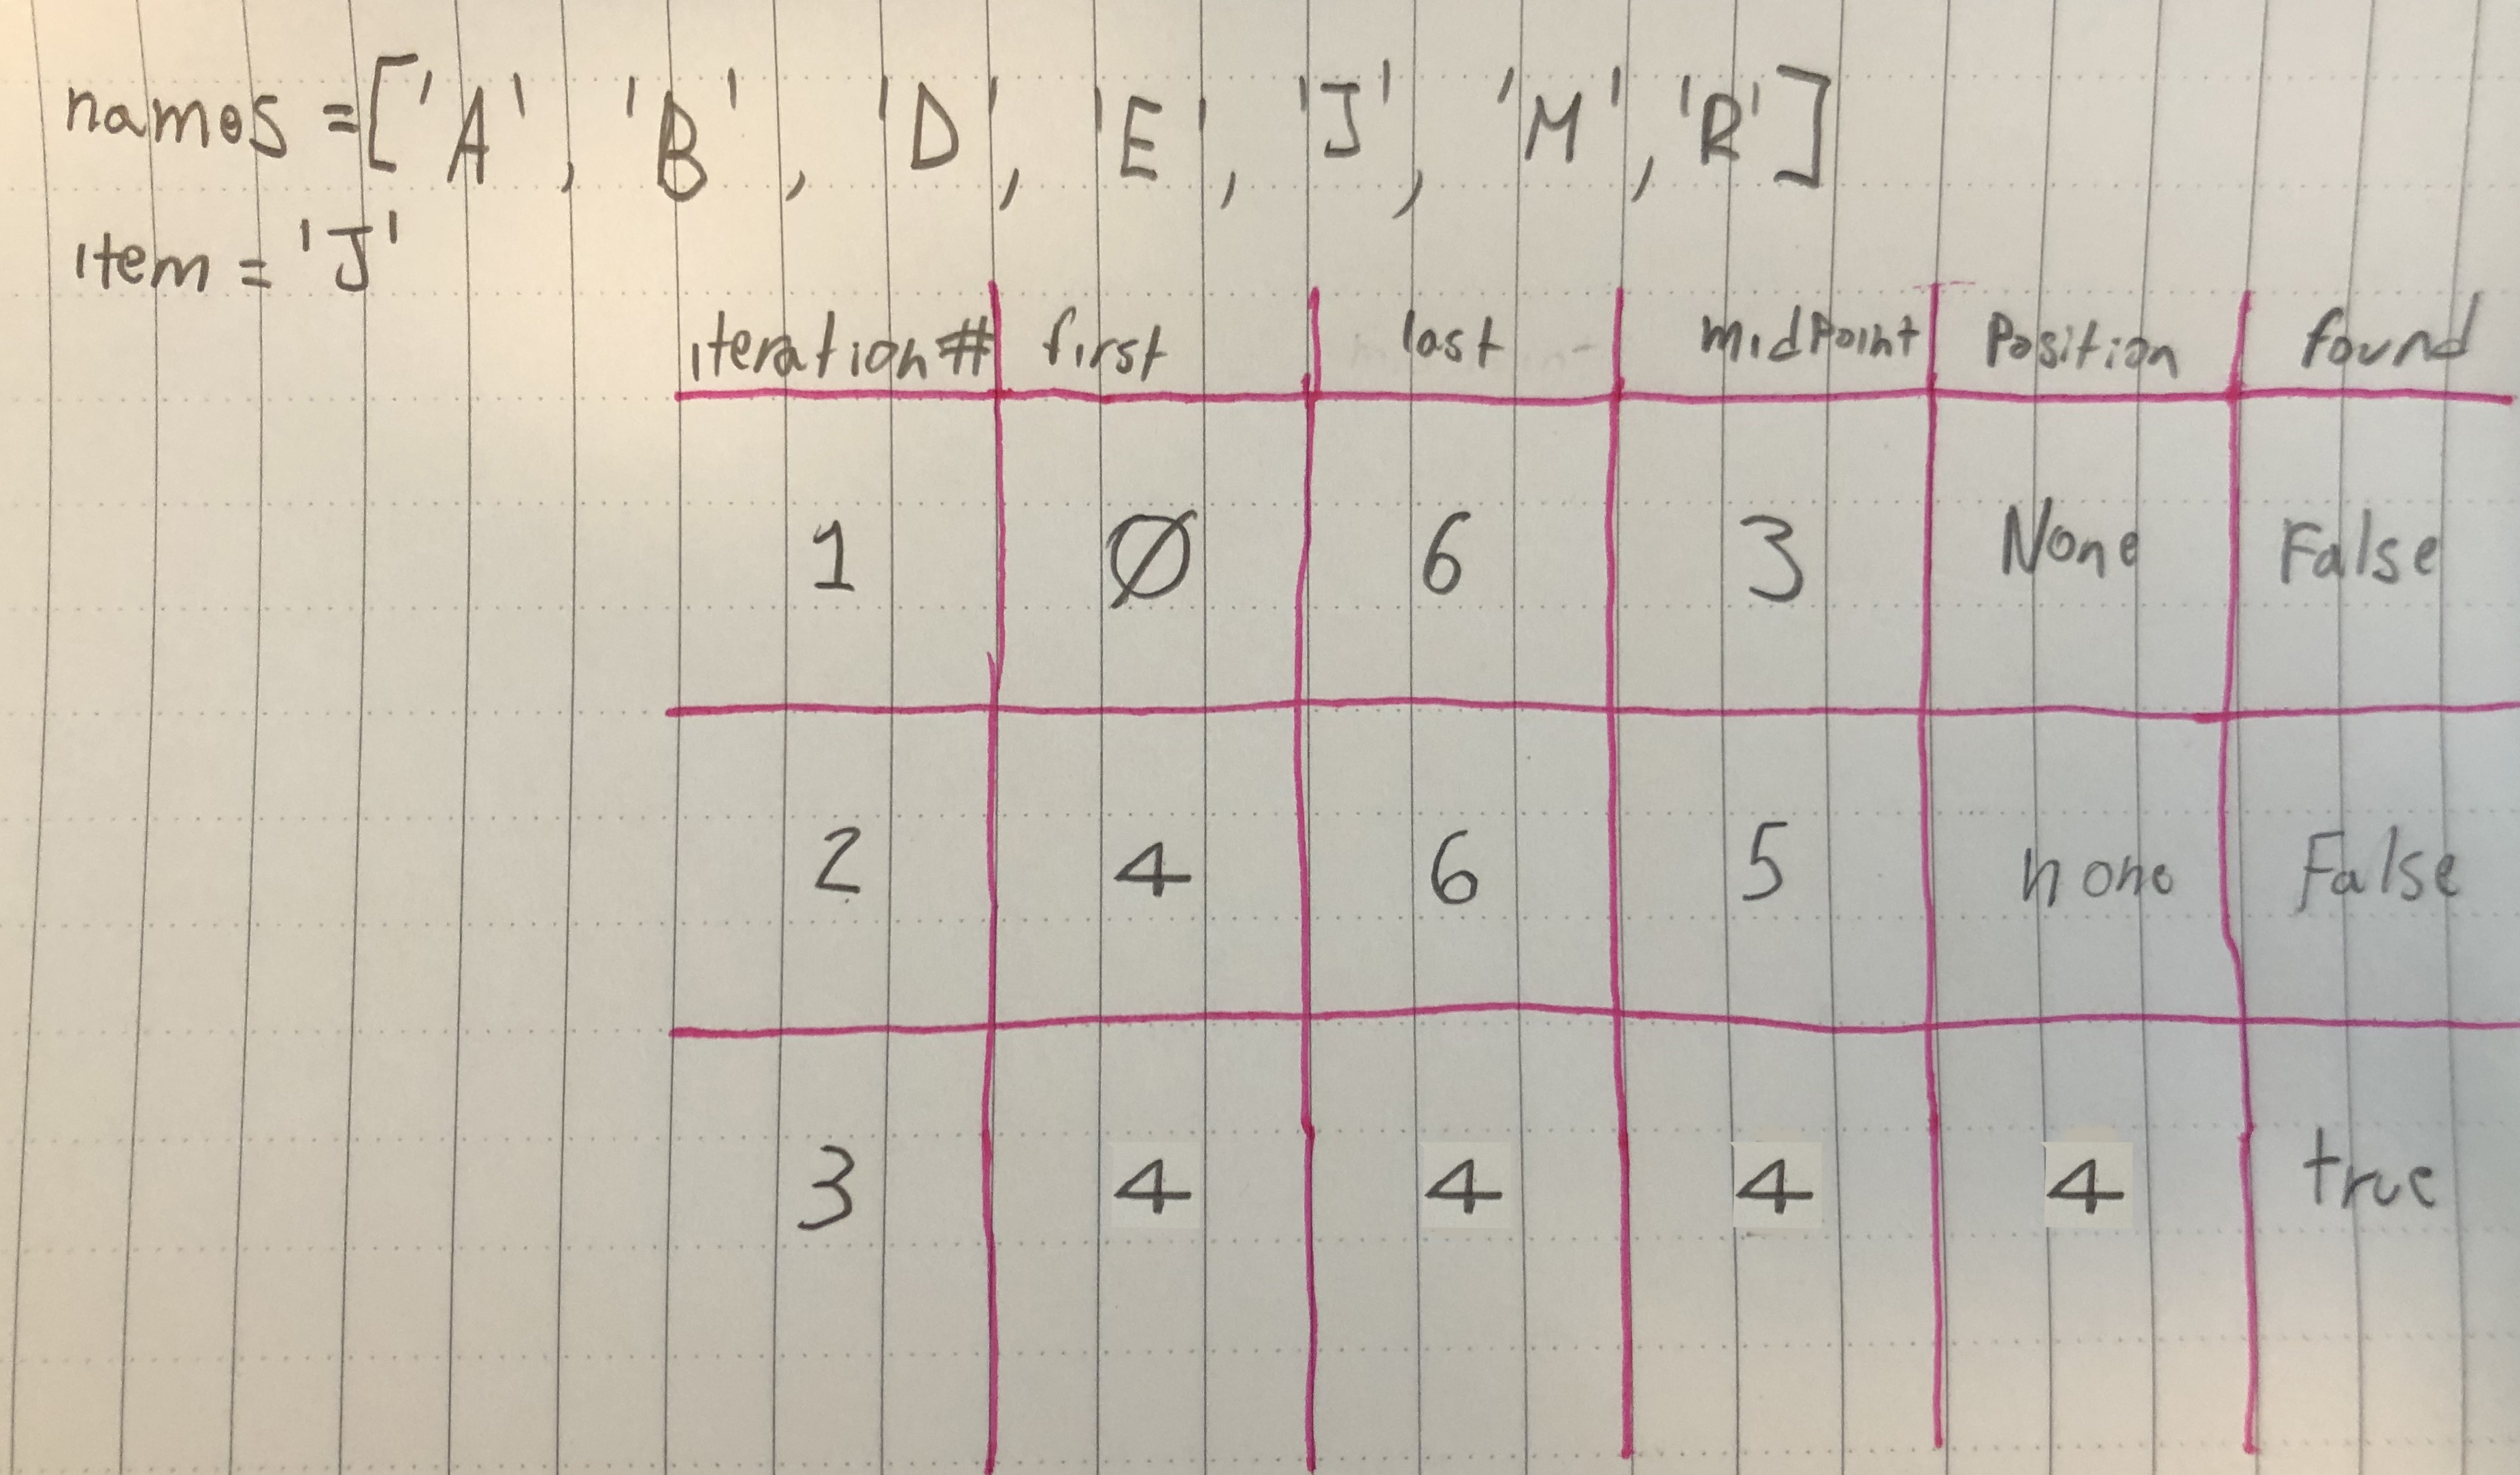 names = ['A', 'B', 'D', 'E', 'J', 'M', 'R']
item = 'J'
iteration# first last midPoint Position found
1 Ø 6 3 None False
2 4 6 5 none False
3 4 4 4 4 true